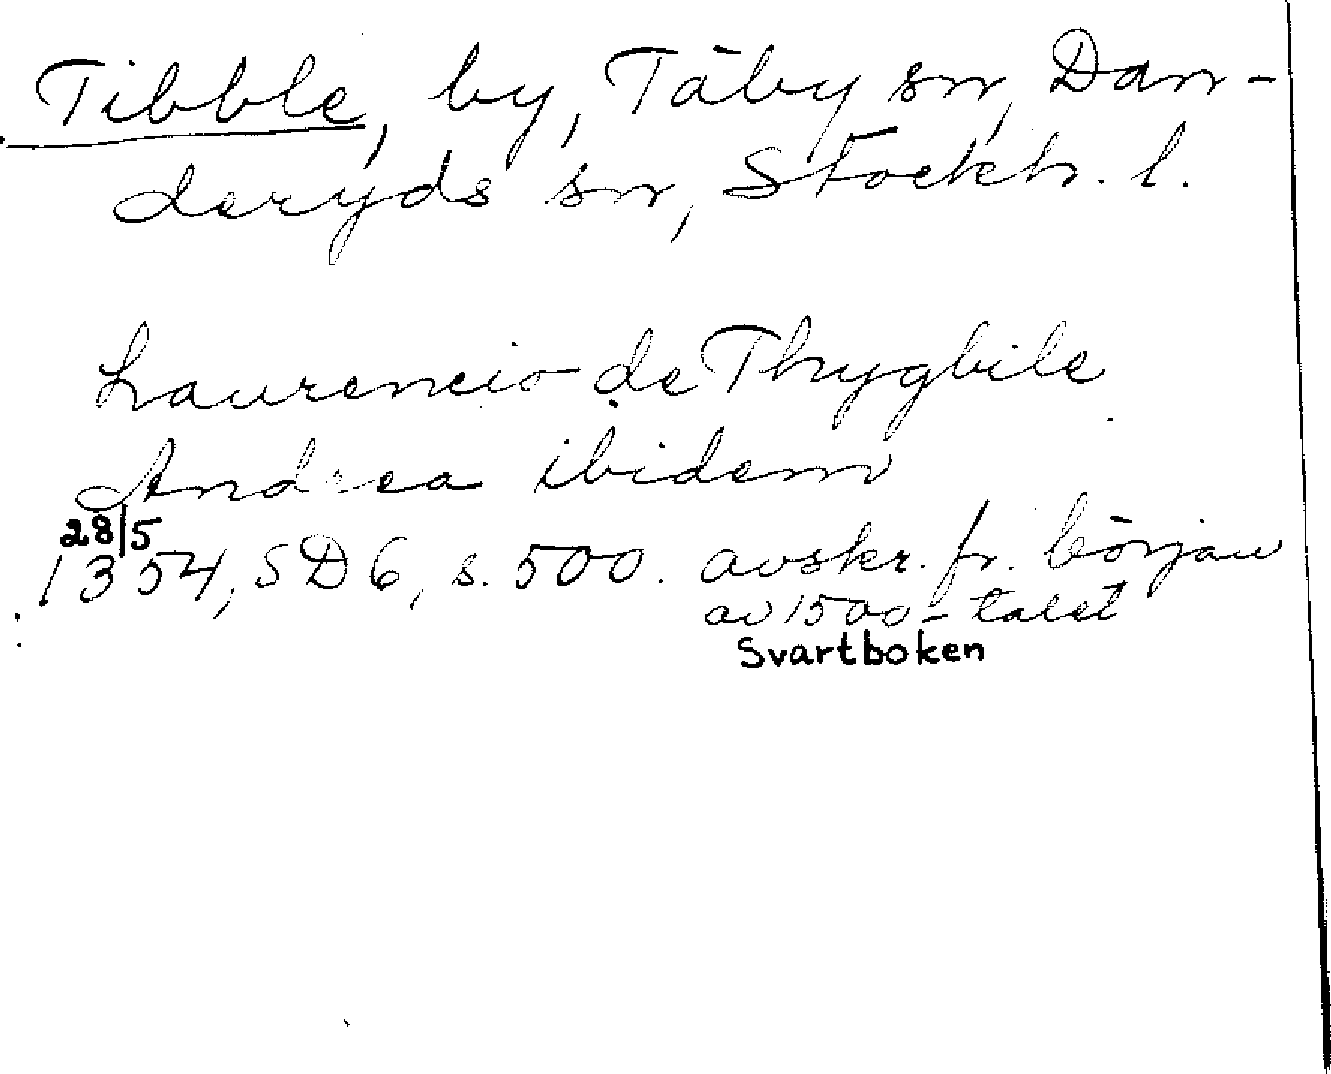 Tibble, by, Täby sn, Dan-
deryds sn, Stockh. l.
Laurencio de Thygbile
Andrea ibidem
28/5
1354, SD 6, s. 500. avskr. fr. början
av 1500-talet
Svartboken